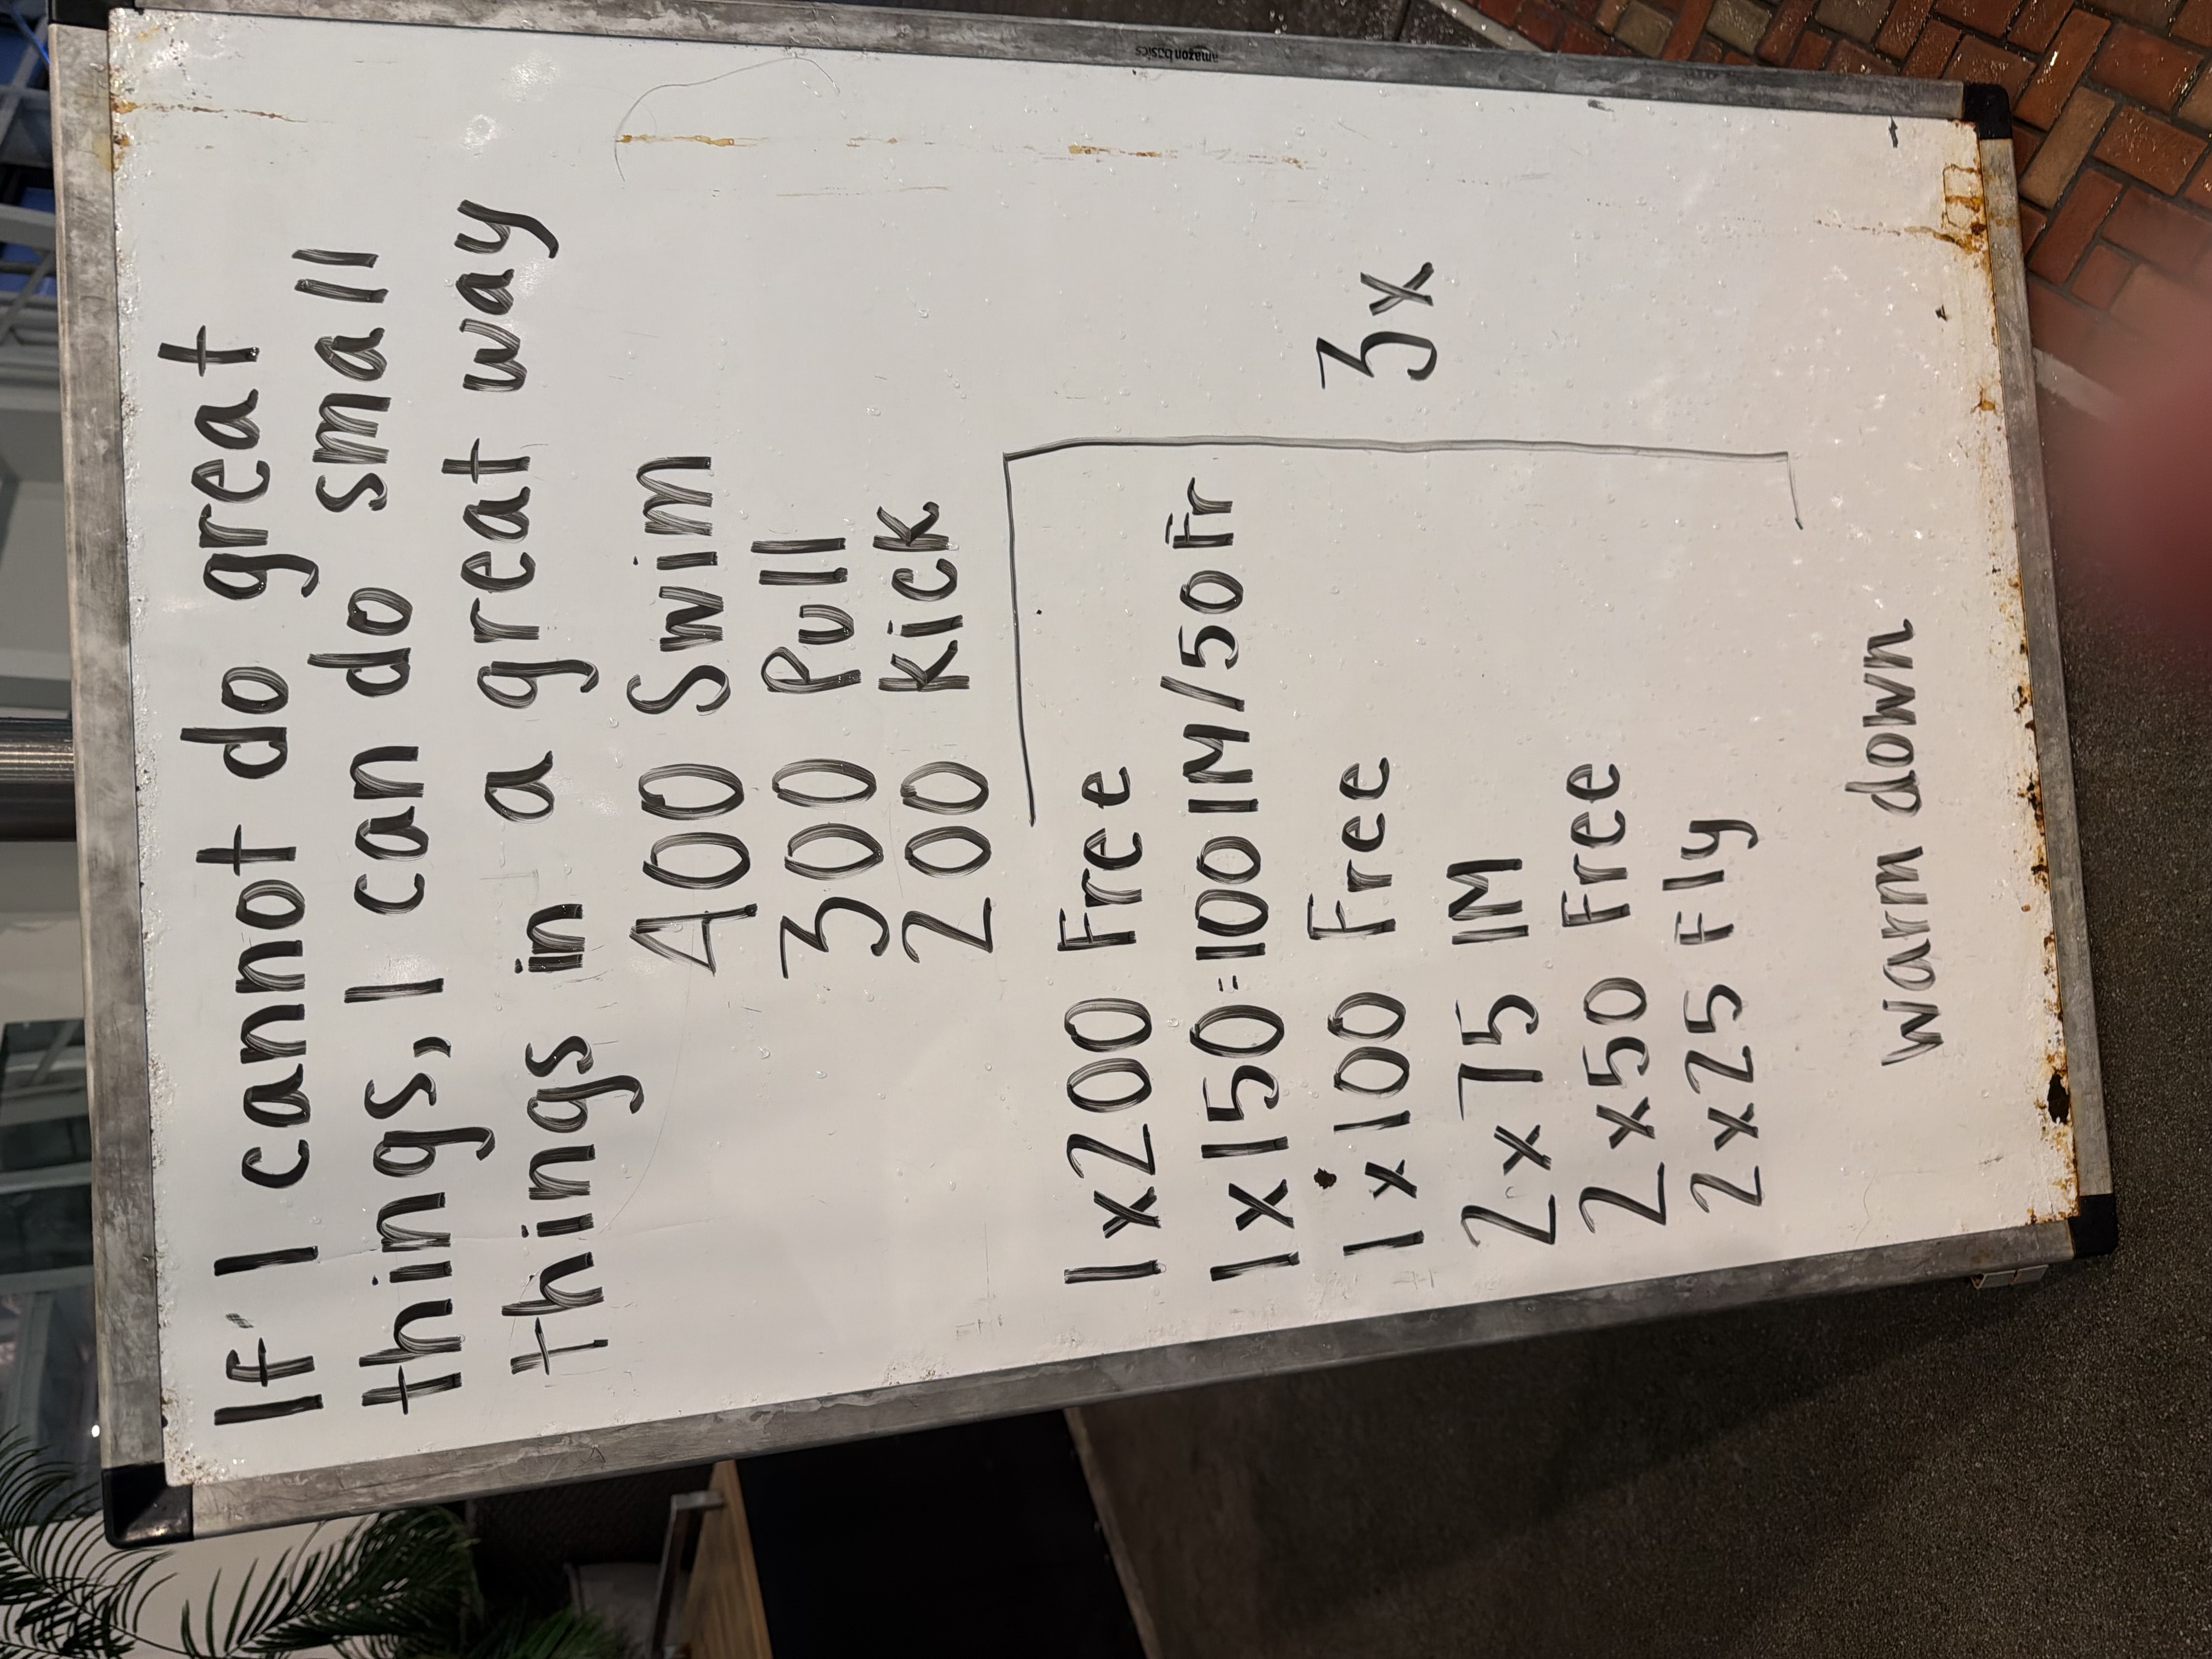 amazon basics
If I cannot do great
things, I can do small
things in a great way
400 Swim
300 Pull
200 Kick
1x200 Free
1x150=100IM/50Fr
1x100 Free
3x
2x75 IM
2x50 Free
2x25 Fly
warm down